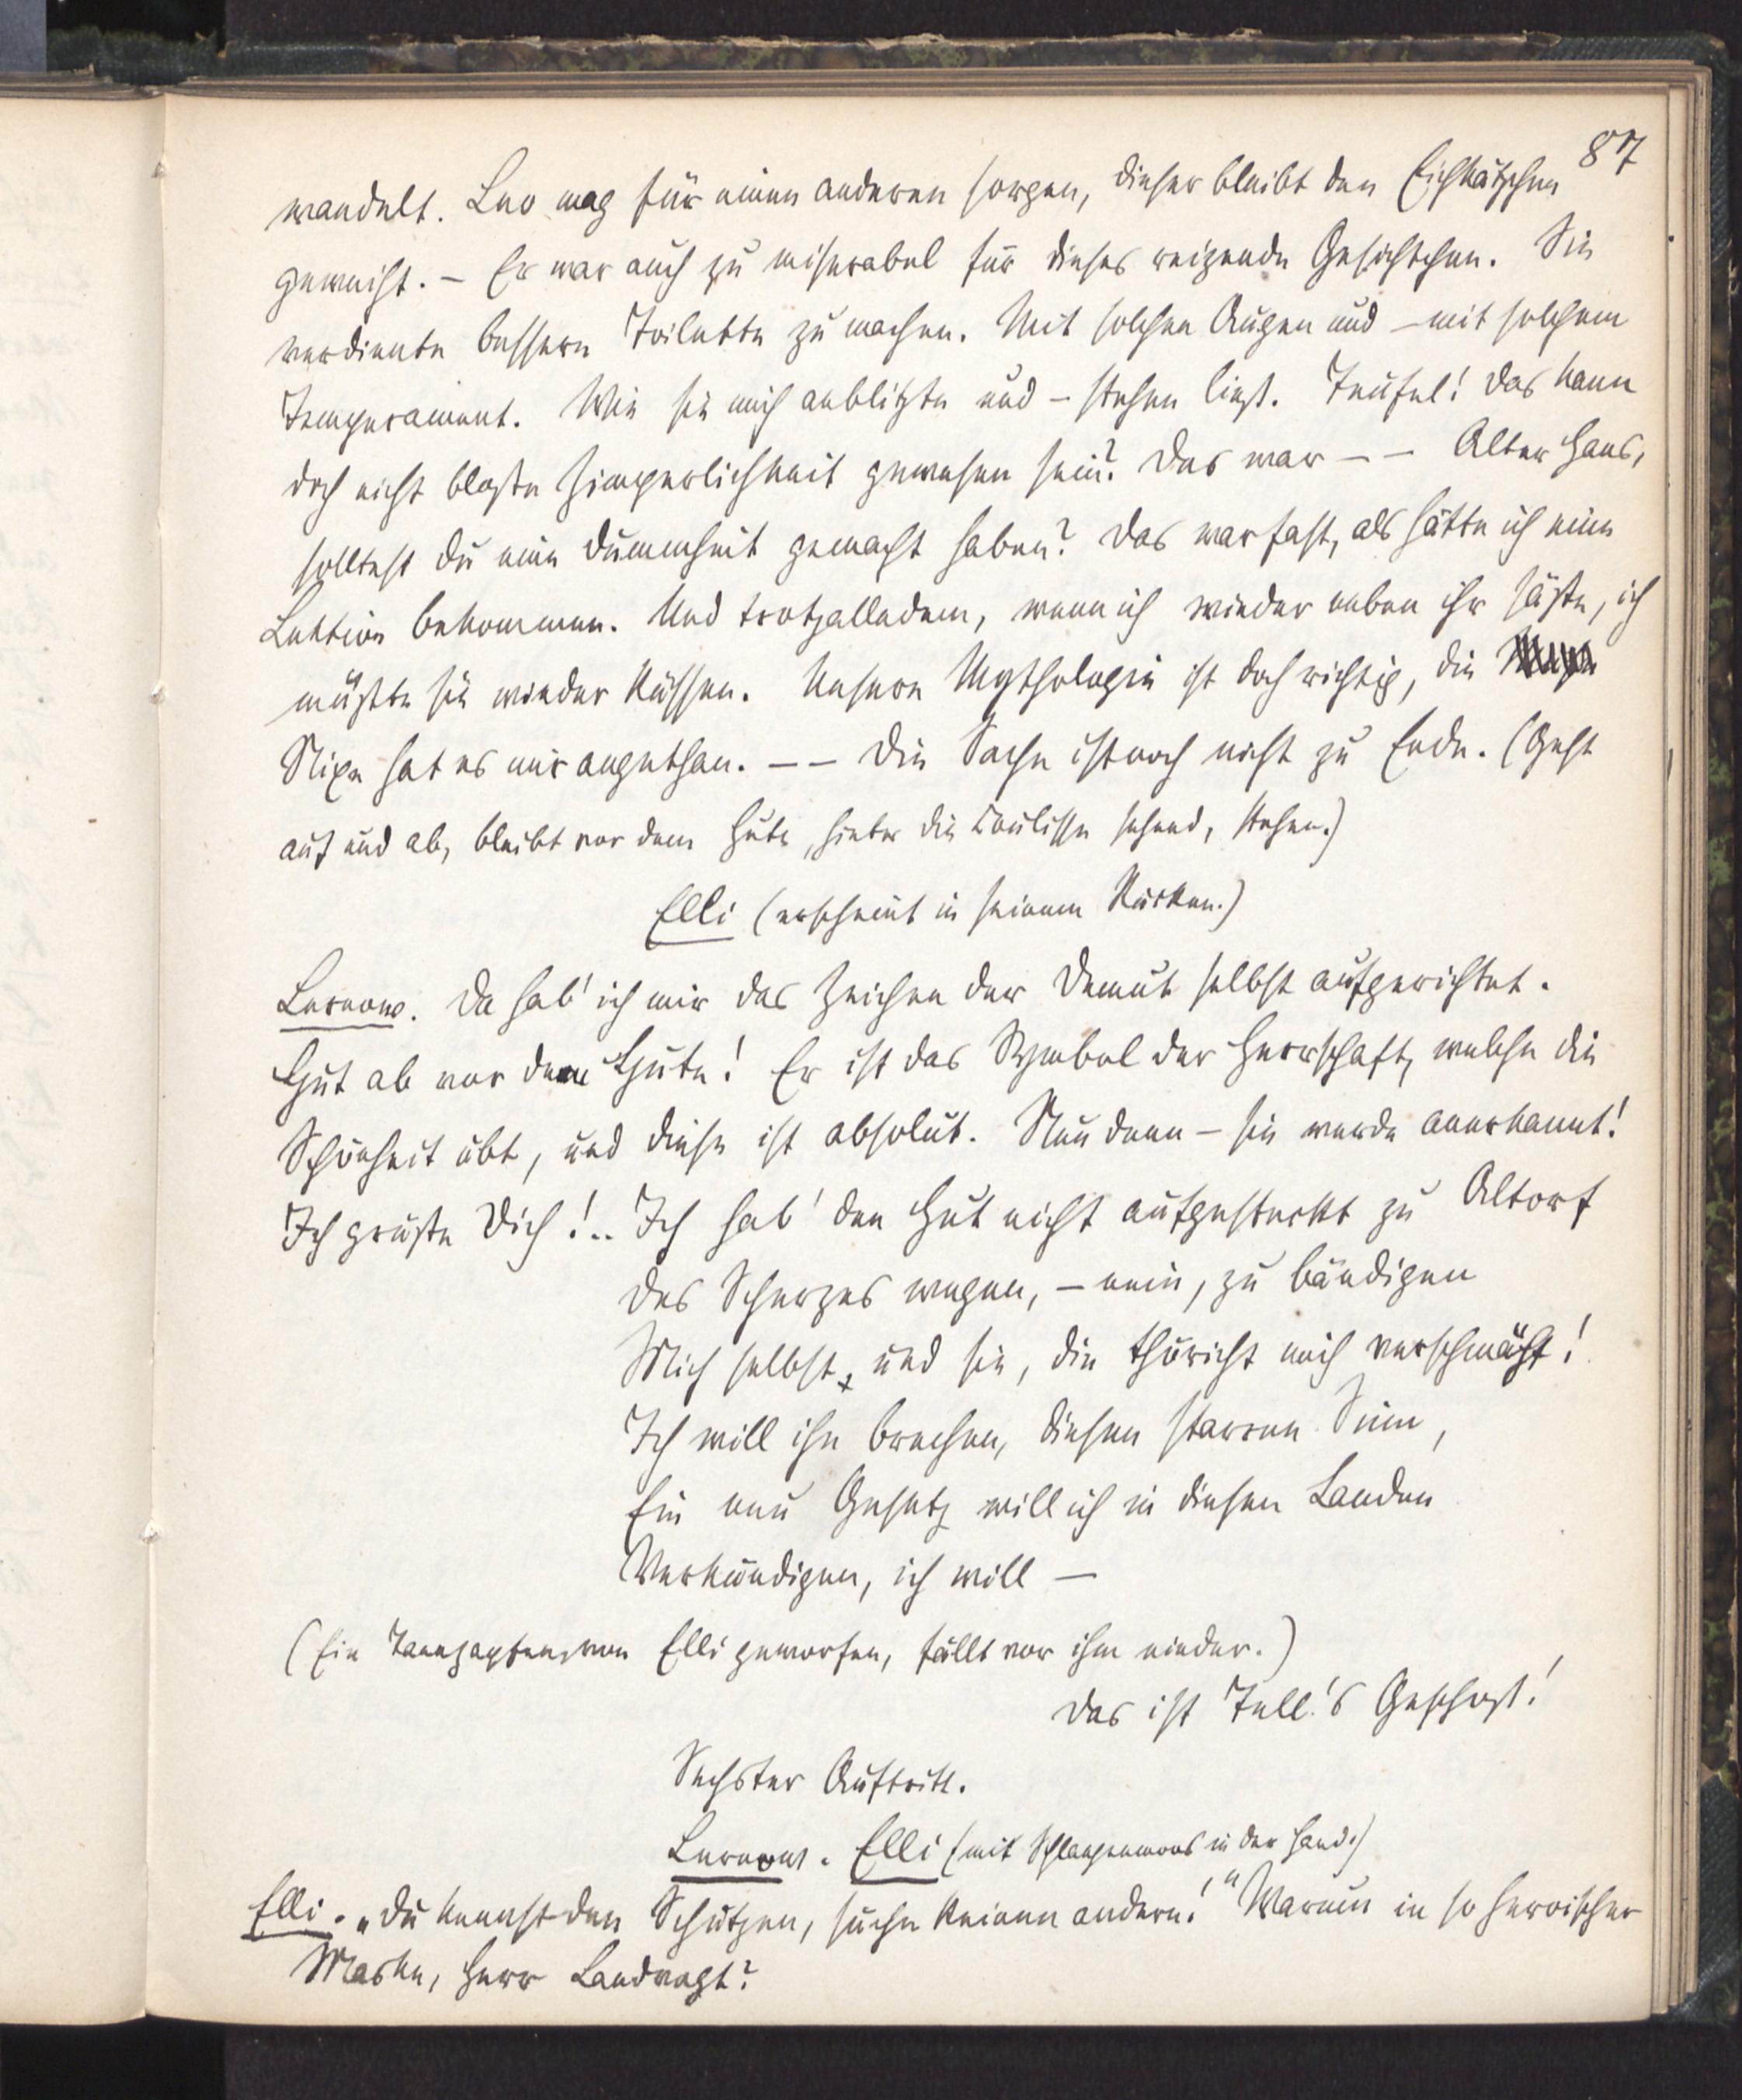 87
wandelt. Leo mag für einen anderen sorgen, dieser bleibt den Eichkätzchen
geweiht. – Er war auch zu miserabel für dieses reizende Gesichtchen. Sie
verdiente bessere Toilette zu machen. Mit solchen Augen und – mit solchem
Temperament. Wie sie mich anblitzte und – stehen ließ. Teufel! Das kann
doch nicht bloße Zimperlichkeit gewesen sein? Das war – – Alter Hans,
solltest du eine Dummheit gemacht haben? Das war fast, als hätte ich eine
Lektion bekommen. Und trotzalledem, wenn ich wieder neben ihr säße, ich
müßte sie wieder küssen. Unsere Mythologie ist doch richtig, die
Nixe hat es mir angethan. – – Die Sache ist noch nicht zu Ende. (Geht
auf und ab, bleibt vor dem Hute, hinter die Coulisse sehend, stehen.)
Elli (erscheint in seinem Rücken.)
Lernow. Da hab' ich mir das Zeichen der Demut selbst aufgerichtet.
Hut ab vor dem Hute! Er ist das Symbol der Herrschaft, welche die
Schönheit übt, und diese ist absolut. Nun denn – sie werde anerkannt!
Ich grüße Dich!.. Ich hab' den Hut nicht aufgesteckt zu Altorf
Des Scherzes wegen, – nein, zu bändigen
Mich selbst, und sie, die thöricht mich verschmäht!
Ich will ihn brechen, diesen starren Sinn,
Ein neu Gesetz will ich in diesen Landen
Verkündigen, ich will –
(Ein Tannzapfen, von Elli geworfen, fällt vor ihm nieder.)
Das ist Tell's Geschoß!
Sechster Auftritt.
Lernow. Elli (mit Schlangenmoos in der Hand.)
Elli. „Du kennst den Schützen, suche keinen andern!" Warum in so heroischer
Maske, Herr Landvogt?